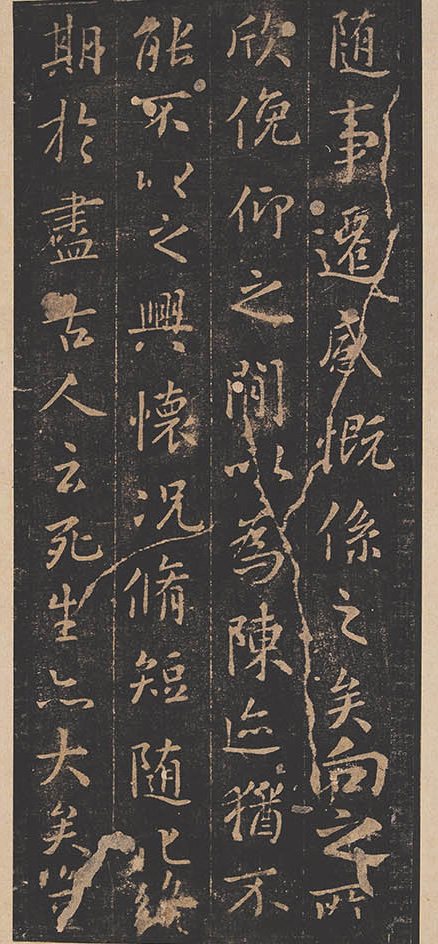 随事遷感慨係之矣向之所
欣俛仰之間以爲陳迹猶不
能不以之興懷況脩短随化終
期於盡古人云死生亦大矣豈